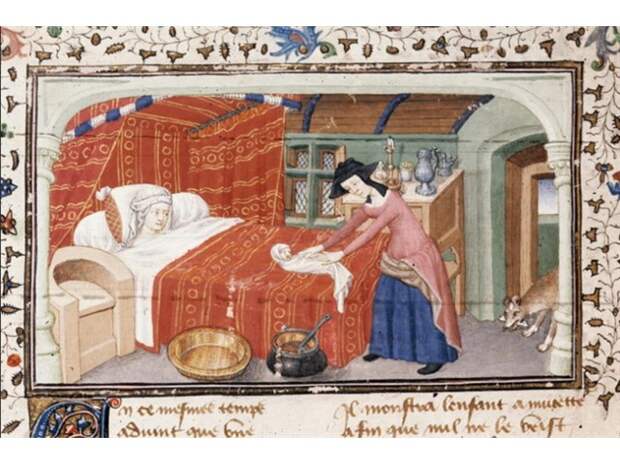 En ce mesmes temps
aduint que vne
Il monstra lenfant a mucette
a fin que nul ne le veist